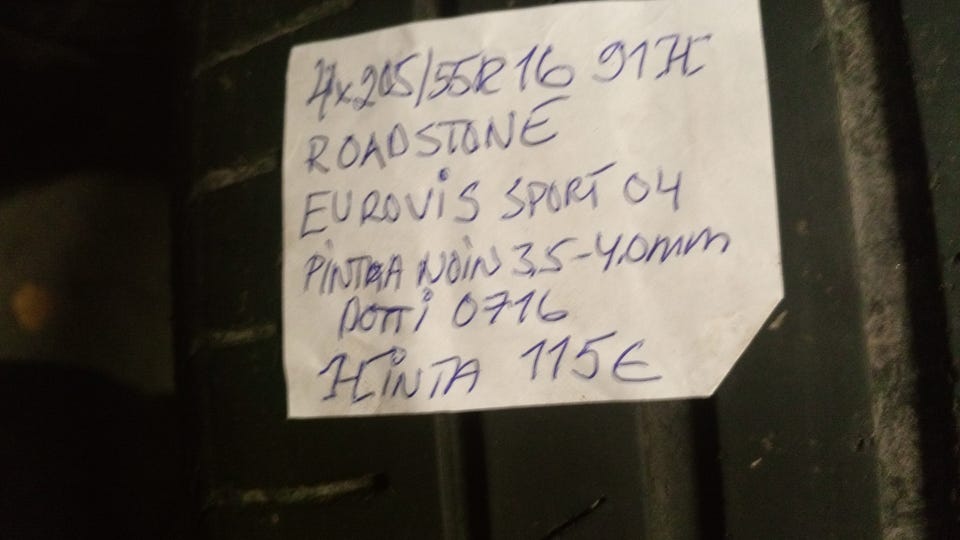 4x205/55R16 91H
ROADSTONE
EUROVIS SPORT 04
PINTAA NOIN 3.5-4.0mm
DOTTI 0716
HINTA 115€